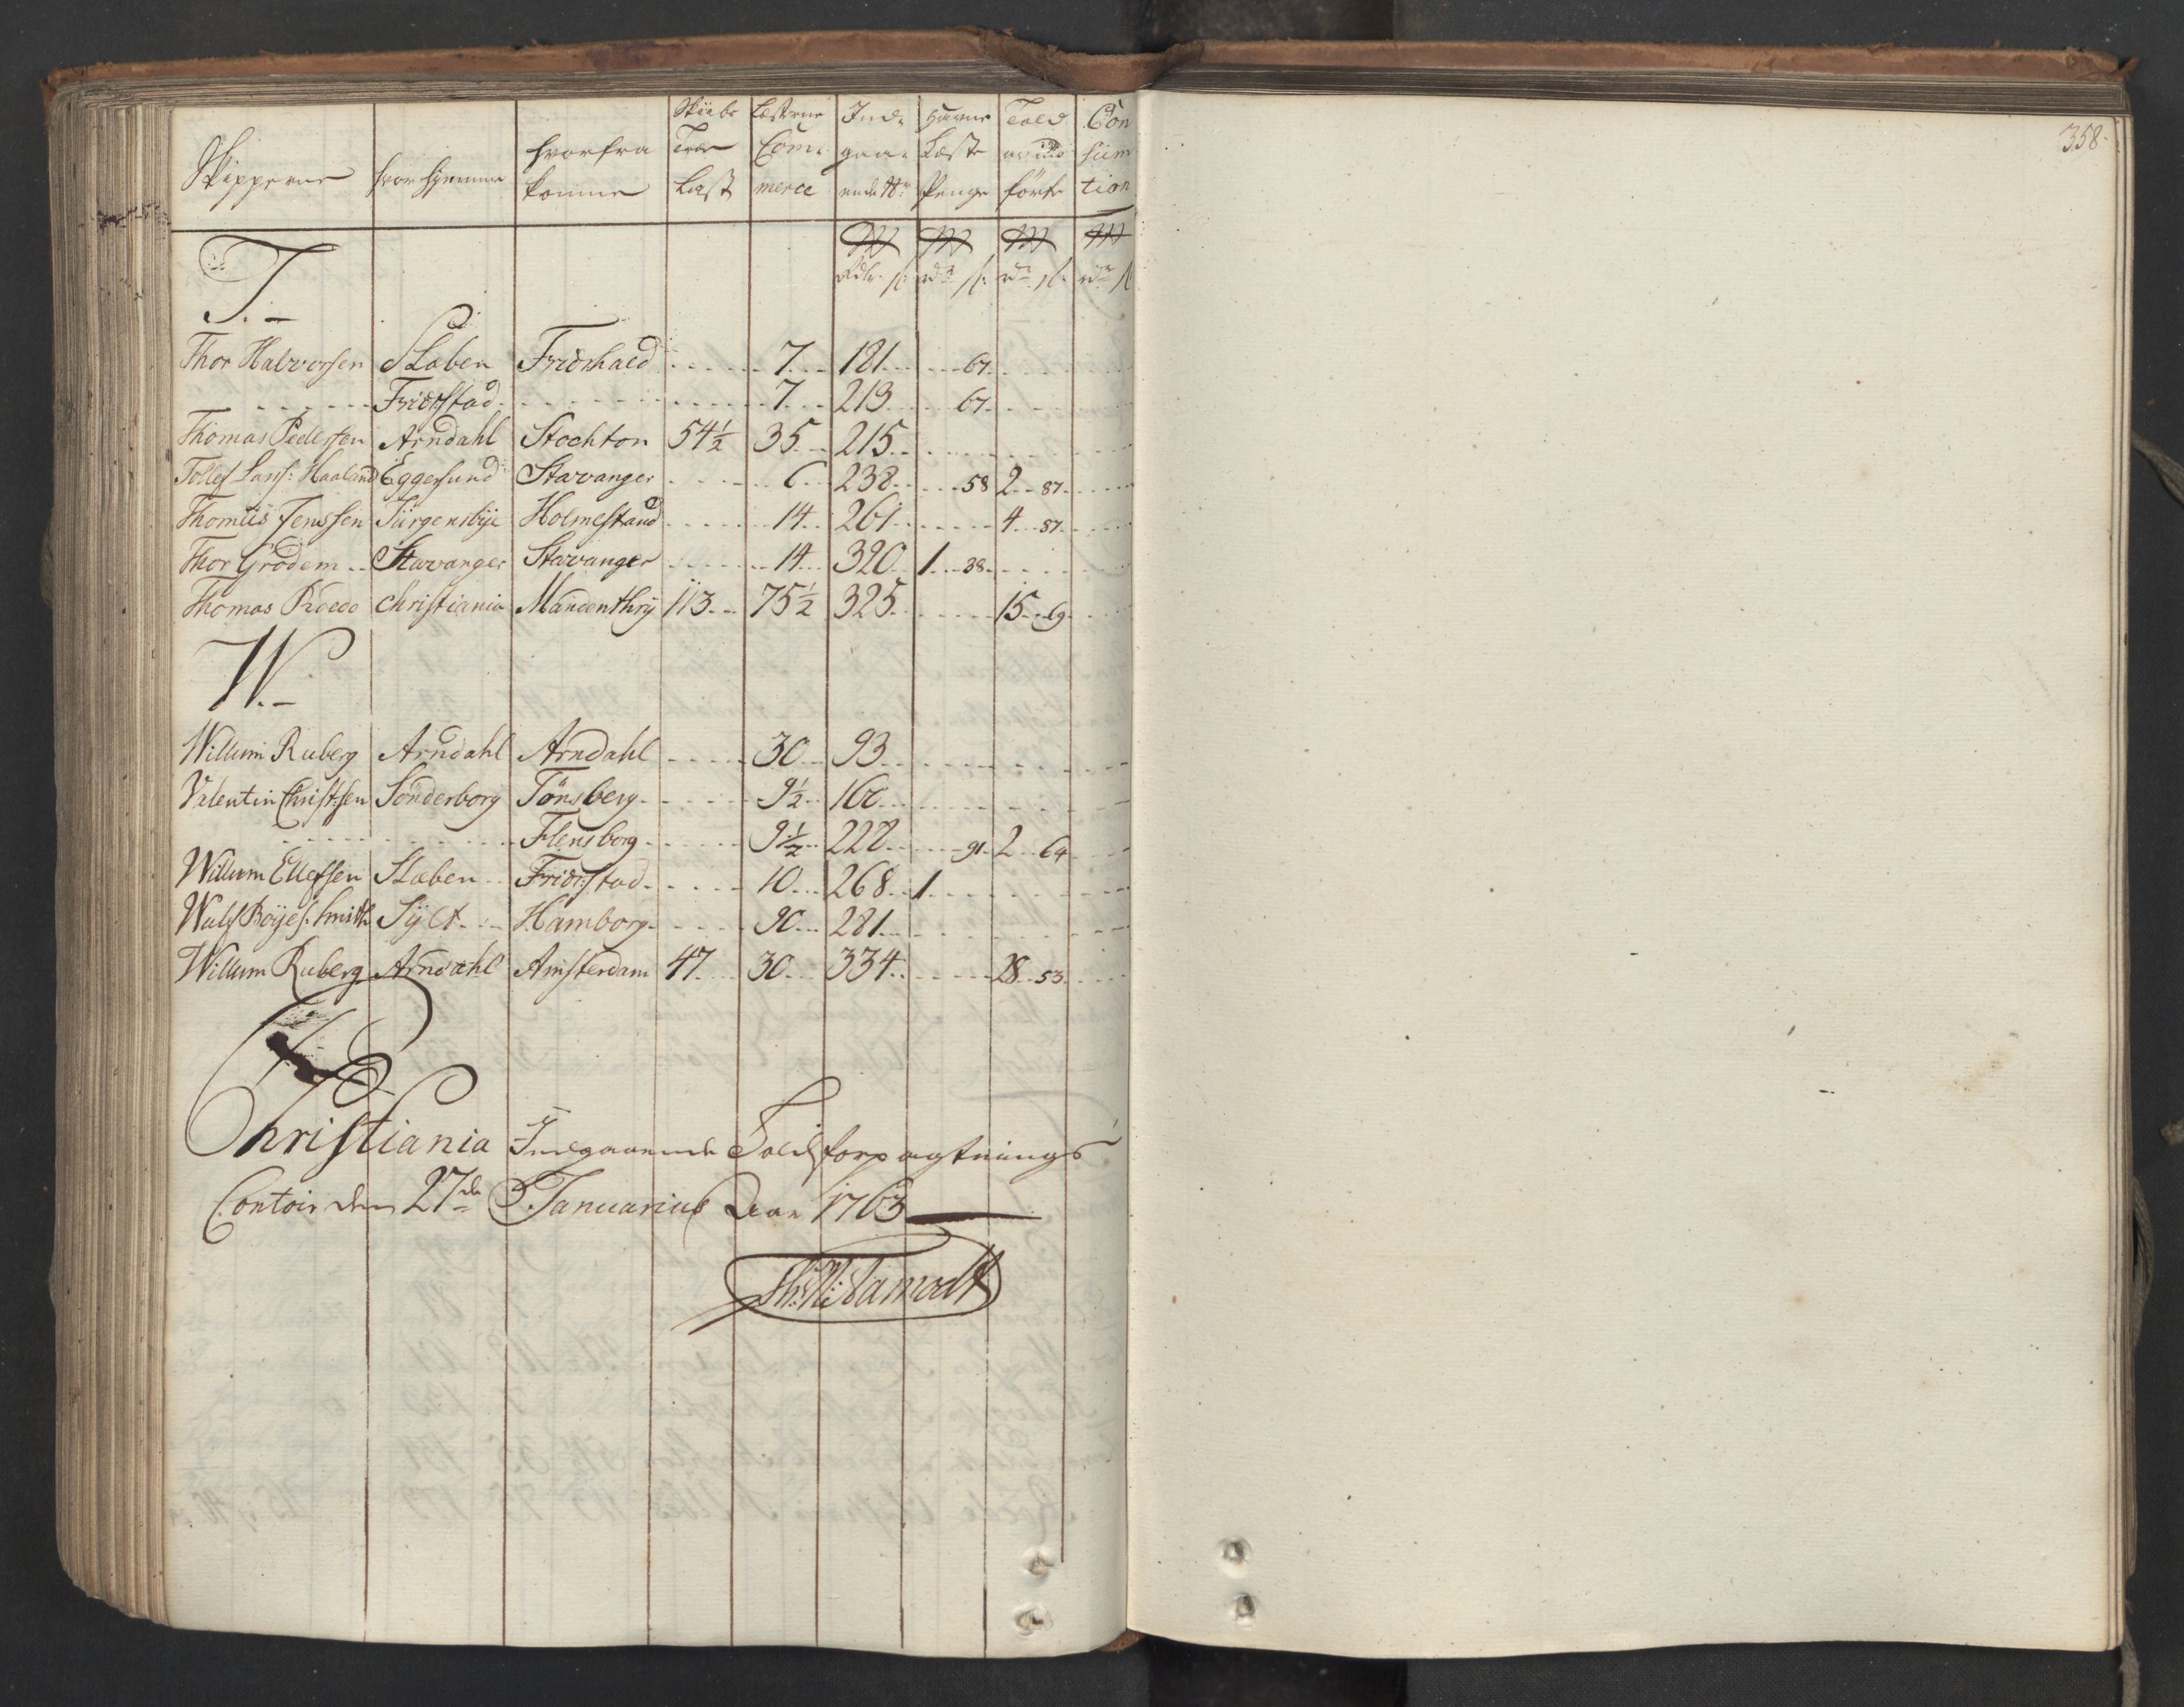 Skipperne hvor hjemme hvorfra komne Skibs Træ Læst Læsterne Comᵉ merce Indᵉ gaaᵉ ende Nᵒ Havne Læste Penge Told av indᵉ förte Con sum tion
Rdlr. ß. rdʳ ß. rdʳ ß. rdʳ ß
T. –
Thor Halvorsen Slaben Fridrhald 7 181 67
Fridrstad 7 213 67
Thomas Pedersen Arndahl Stockton 54½ 35 215
Tollef Lars: Haaland Eggersund Stavanger 6 238 58 2 87
Thomas Jenssen Jürgensbye Holmestrand 14 261 4 87
Thor Grödem Stavanger Stavanger 14 320 1 38
Thomas Roede Christiania 113 75½ 325 15 69
W. –
Willum Ruberg Arndahl Arndahl 30 93
Valentin Christsen Sönderborg Tönsberg 9½ 166
Flensborg 9½ 228 91 2 64
Willum Ellefsen Slaben Fridrstad 10 268 1
Wulf Boyes: Smith Sylt Hamborg 90 281
Willum Ruberg Arndahl Amsterdam 47 30 334 28 53
Christiania Indgaaende Toldforpagtnings
Contoir den 27de Januarius Aar 1763
358.